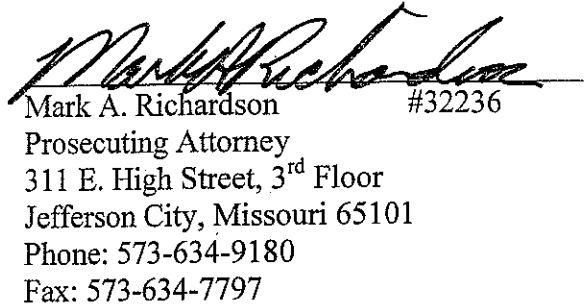 Mark A Richardson
Mark A. Richardson #32236
Prosecuting Attorney
311 E. High Street, 3rd Floor
Jefferson City, Missouri 65101
Phone: 573-634-9180
Fax: 573-634-7797